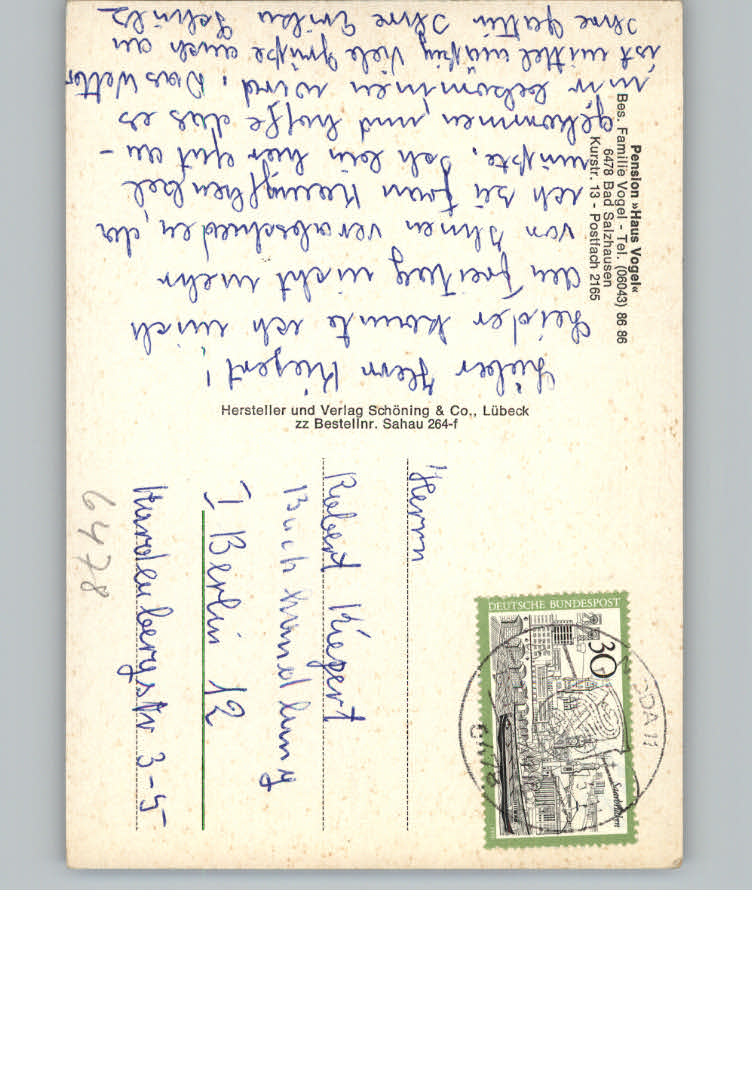 Lieber Herr Kiepert!
Leider konnte ich mich
am Freitag nicht mehr
von Ihnen verabschieden, da
ich zu Frau
mußte. Ich bin hier gut an-
gekommen, und hoffe das es
mir bekommen wird. Das Wetter
ist mittelmäßig viele Grüße auch an
Ihre Gattin Ihre Schulz
Pension »Haus Vogel«
Bes. Familie Vogel - Tel. (06043) 86 86
6478 Bad Salzhausen
Kurstr. 13 - Postfach 2165
Hersteller und Verlag Schöning & Co., Lübeck
zz Bestellnr. Sahau 264-f
DEUTSCHE BUNDESPOST
30
Saarbrücken
DDA 11
Herrn
Robert Kiepert
Buchhandlung
1 Berlin 12
Hardenbergstr 3-5
6478